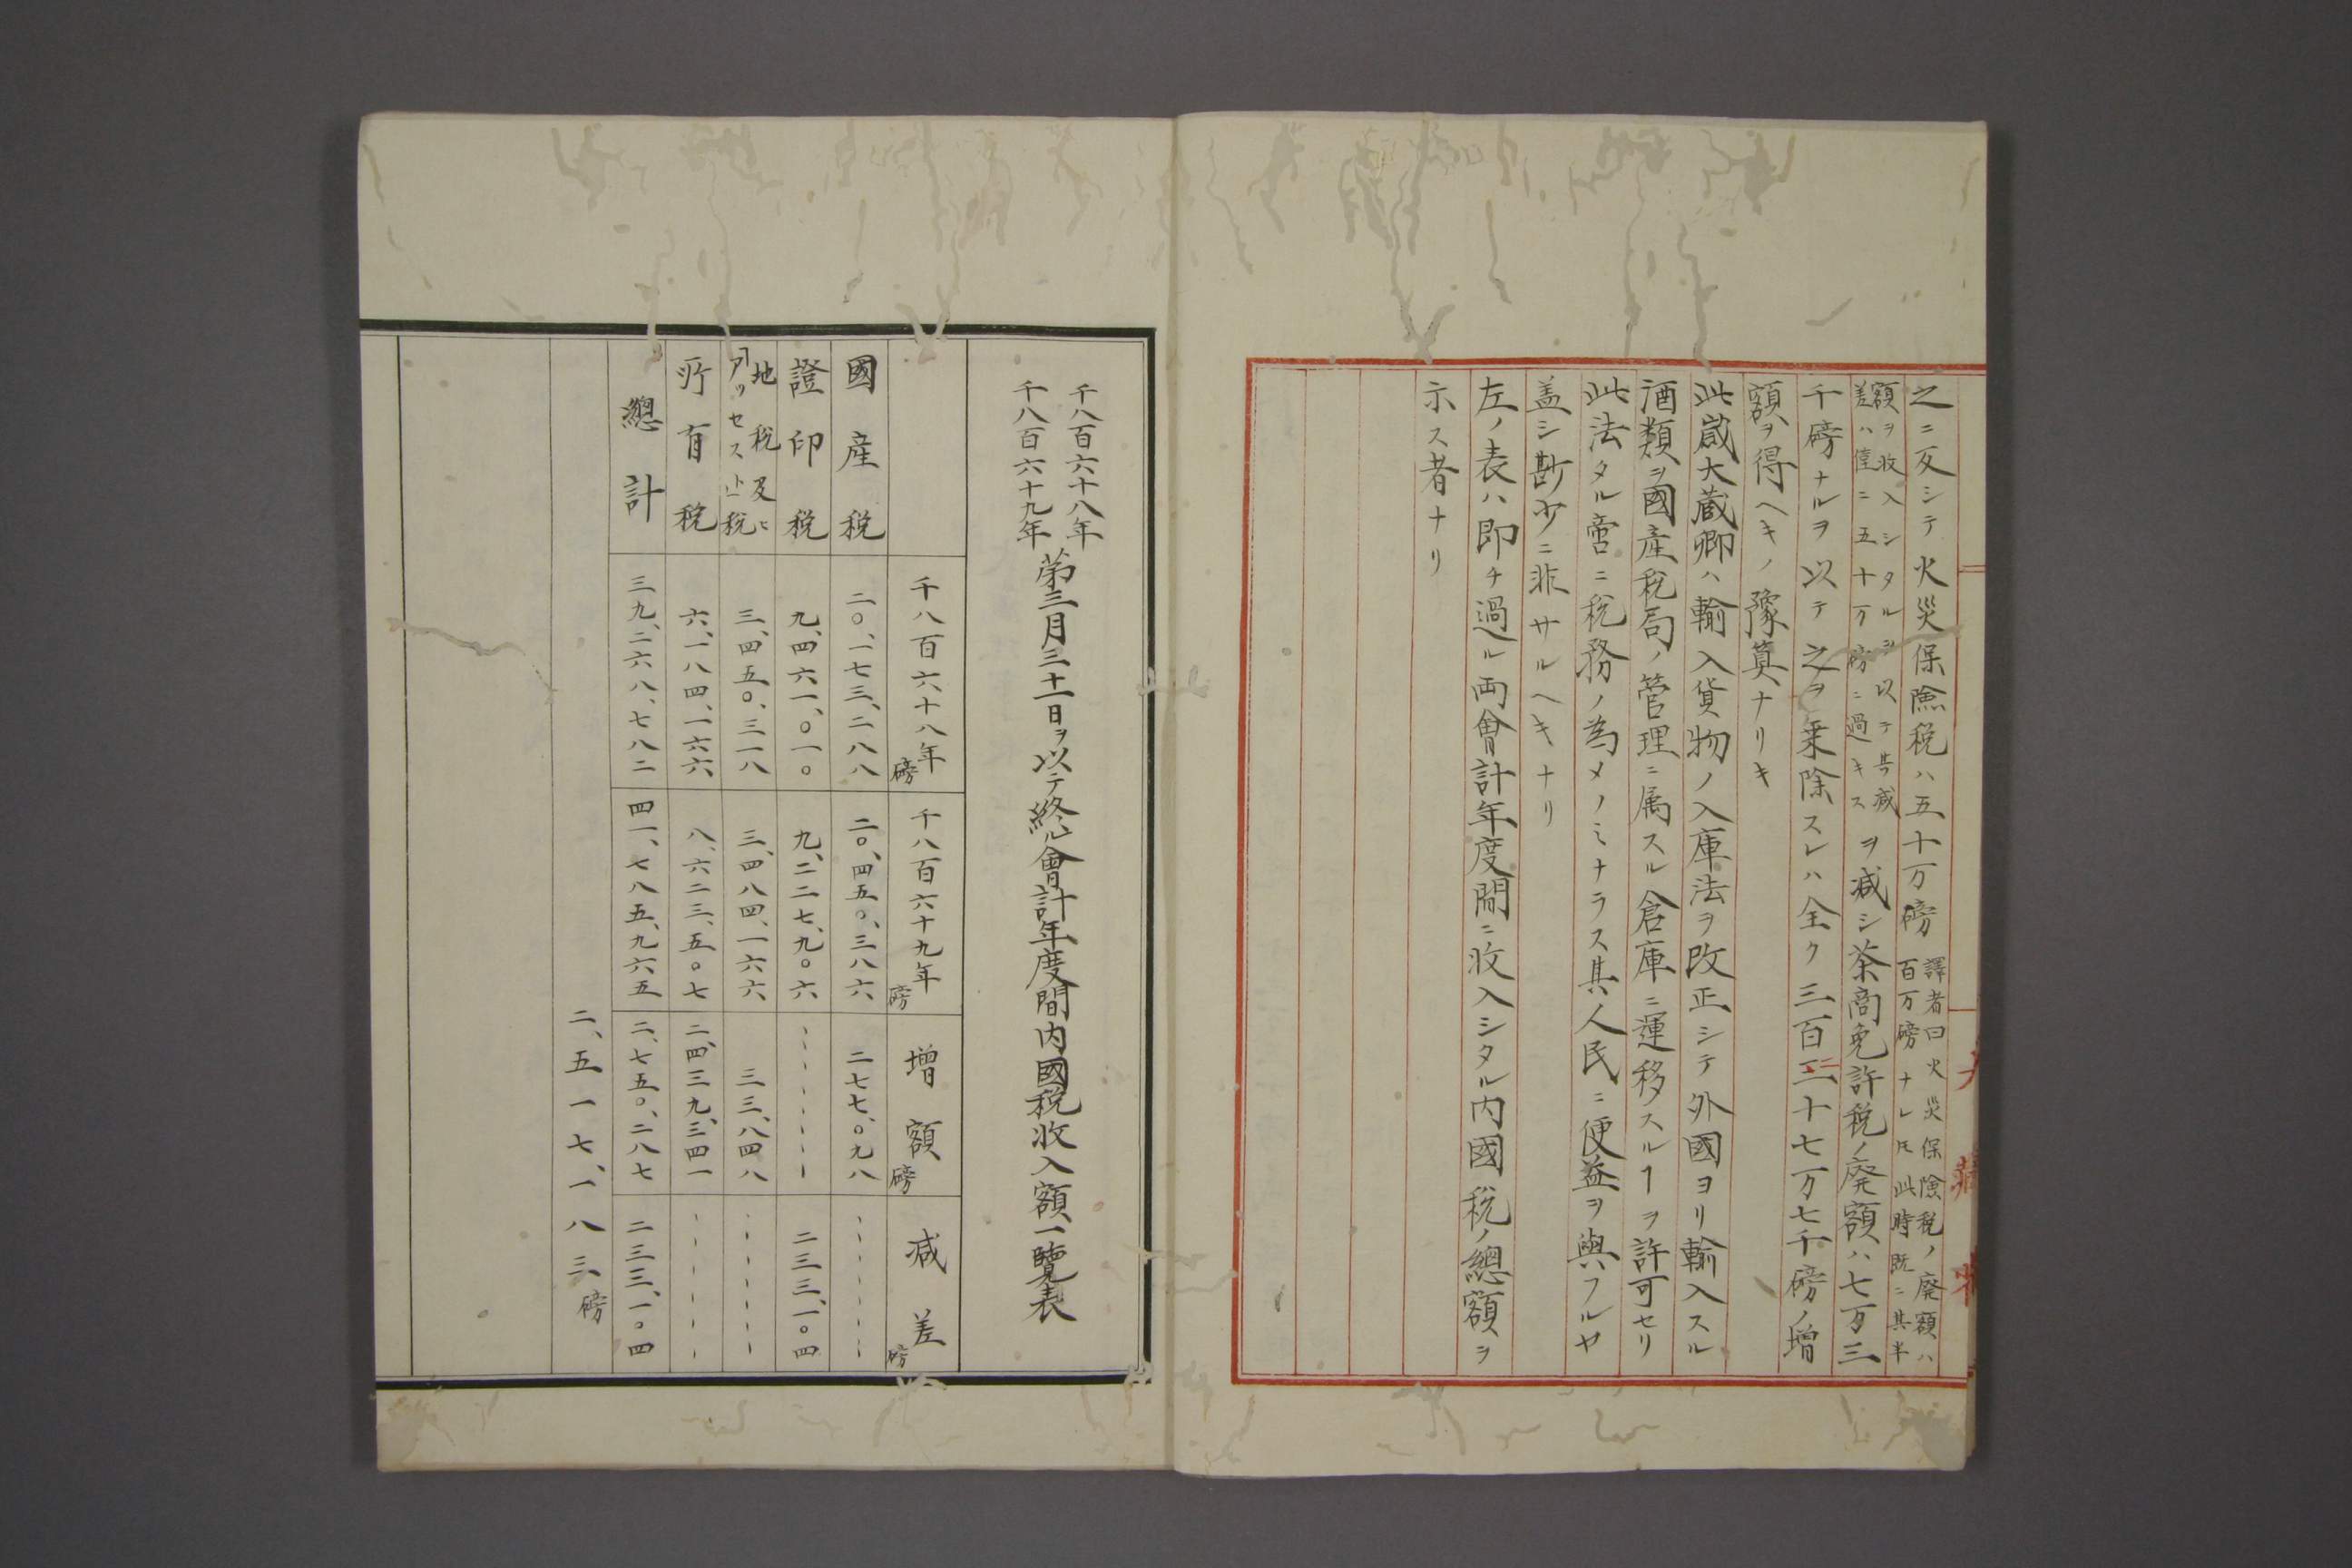 之ニ反シテ火災保險税ハ五十万磅
譯者曰火災保險税ノ廢額ハ
百万磅ナレ𪜈此時既ニ其半
額ヲ收入シタルヲ以テ其减
差ハ僅ニ五十万磅ニ過キス
ヲ减シ茶商免許税ノ廢額ハ七万三
千磅ナルヲ以テ之ヲ乗除スレハ全ク三百二十七万七千磅ノ增
額ヲ得ヘキノ豫算ナリキ
此歳大藏卿ハ輸入貨物ノ入庫法ヲ改正シテ外國ヨリ輸入スル
酒類ヲ國產税局ノ管理ニ属スル倉庫ニ運移スルヿヲ許可セリ
此法タル啻ニ税務ノ為メノミナラス其人民ニ便益ヲ與フルヤ
盖シ尠少ニ非サルヘキナリ
左ノ表ハ即チ過ル両會計年度間ニ收入シタル内國税ノ總額ヲ
示ス者ナリ
千八百六十八年
千八百六十九年
第三月三十一日ヲ以テ終ル會計年度間内國税收入額一覽表
千八百六十八年 磅
千八百六十九年 磅
增額 磅
减差 磅
國產税
二〇、一七三、二八八
二〇、四五〇、三八六
二七七、〇九八
證印税
九、四六一、〇一〇
九、二二七、九〇六
二三三、一〇四
地税及ヒ
アツセスト税
三、四五〇、三一八
三、四八四、一六六
三三、八四八
所有税
六、一八四、一六六
八、六二三、五〇七
二、四三九、三四一
總計
三九、二六八、七八二
四一、七八五、九六五
二、七五〇、二八七
二三三、一〇四
二、五一七、一八三磅